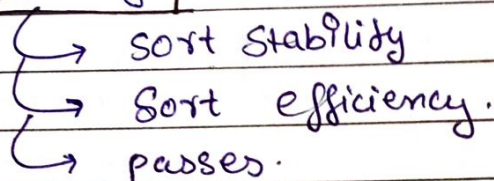 sort stability
Sort efficiency.
passes.